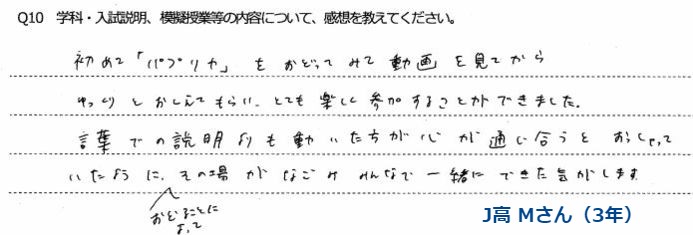 Q10 学科・入試説明、模擬授業等の内容について、感想を教えてください。
初めて「パプリカ」をおどってみて動画を見てから
ゆっくりとおしえてもらい、とても楽しく参加することができました。
言葉での説明よりも動いた方が心が通い合うとおっしゃって
いたように、その場がなごみみんなで一緒にできた気がします
おどることに
よって
J高 Mさん（3年）